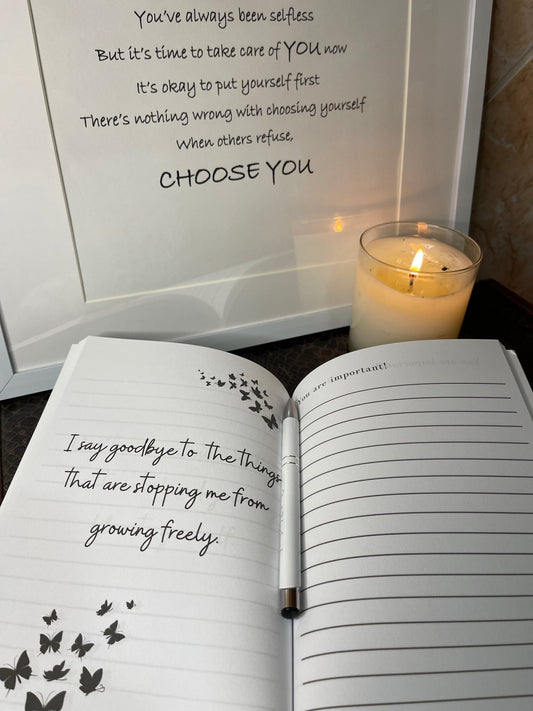 You've always been selfless
But it's time to take care of YOU now
It's okay to put yourself first
There's nothing wrong with choosing yourself
When others refuse,
CHOOSE YOU
You are important!
I say goodbye to the things
that are stopping me from
growing freely.